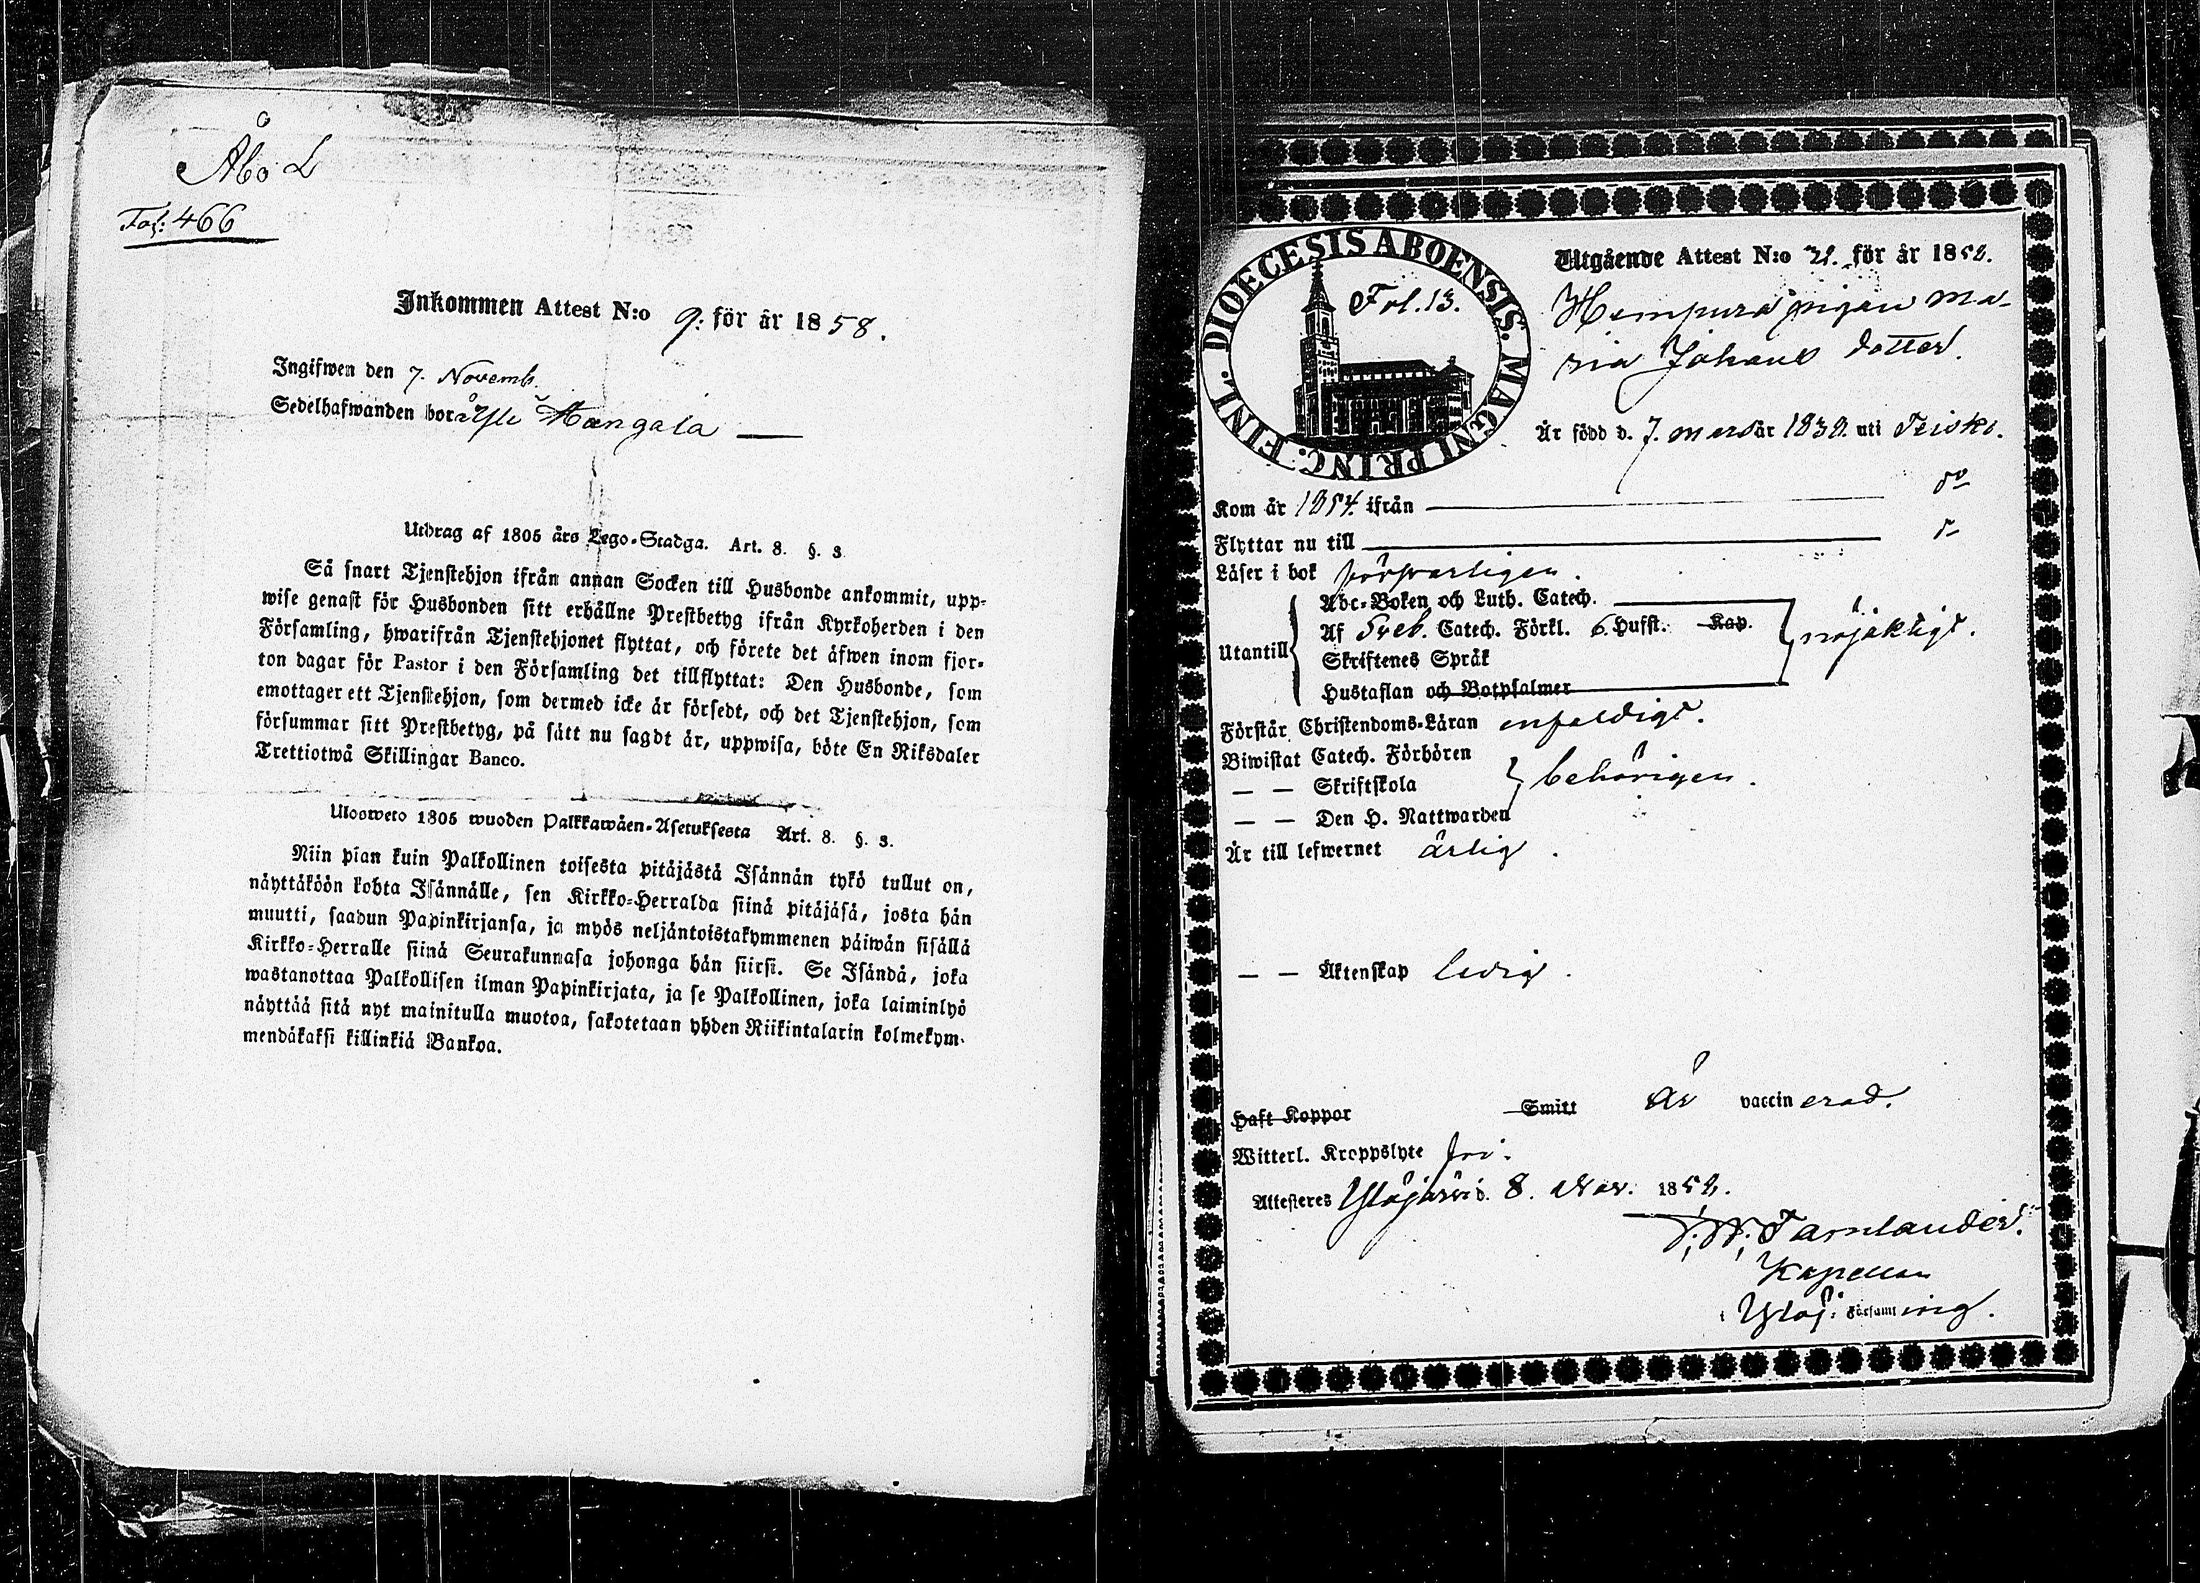 Åbo L
Fol: 466
Inkommen Attest N:o 9: för år 1858.
Ingifwen den 7. Novemb.
Sedelhafwanden bor å Yli Hangala
Utdrag af 1805 års Lego-Stadga. Art. 8. §. 3
Så snart Tjenstehjon ifrån annan Socken till Husbonde ankommit, upp-
wise genast för Husbonden sitt erhållne Prestbetyg ifrån Kyrkoherden i den
Församling, hwarifrån Tjenstehjonet flyttat, och förete det äfwen inom fjor-
ton dagar för Pastor i den Församling det tillflyttat: Den Husbonde, som
emottager ett Tjenstehjon, som dermed icke är försedt, och det Tjenstehjon, som
försummar sitt Prestbetyg, på sätt nu sagdt är, uppwisa, böte En Riksdaler
Trettiotwå Skillingar Banco.
Ulosweto 1805 wuoden Palkkawäen-Asetuksesta Art. 8. §. 3.
Niin pian kuin Palkollinen toisesta pitäjästä Isännän tykö tullut on,
näyttäköön kohta Isännälle, sen Kirkko-Herralda siinä pitäjäsä, josta hän
muutti, saadun Papinkirjansa, ja myös neljäntoistakymmenen päiwän sisällä
Kirkko-Herralle siinä Seurakunnasa johonga hän siirsi. Se Isändä, joka
wastanottaa Palkollisen ilman Papinkirjata, ja se Palkollinen, joka laiminlyö
näyttää sitä nyt mainitulla muotoa, sakotetaan yhden Riikintalarin kolmekym-
mendäkaksi killinkiä Bankoa.
DIOECESIS ABOENSIS. MAGNI PRINC. FINL.
Fol. 13.
Utgående Attest N:o för år 1858.
Hempura pigan Ma-
ria Johans dotter.
Är född d. 7. Mars år 1830. uti Teisko.
Kom år 1854. ifrån do
Flyttar nu till
Läser i bok försvarligen.
Utantill
Abc-Boken och Luth. Catech.
Af Sveb. Catech. Förkl. 6. Hufst. Kap.
Skriftenes Språk
Hustaflan och Botpsalmer
nöjaktigt.
Förstår Christendoms-Läran enfaldigt.
Biwistat Catech. Förhören
— — Skriftskola
behörigen.
— — Den H. Nattwarden
Är till lefwernet ärlig.
— — Äktenskap ledig.
Haft Koppor Smitt Är vaccinerad.
Witterl. Kroppslyte fri.
Attesteres Ylöjärvi d. 8. Nov. 1858.
Tarnlander.
Kapellan
i Ylöj: Församling.